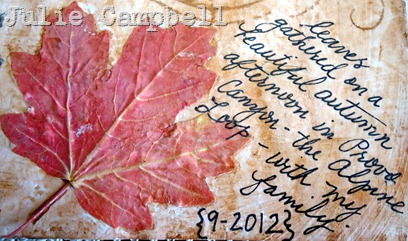 Julie Campbell
leaves
gathered on a
beautiful autumn
afternoon in Provo
Canyon - the Alpine
Loop - with my
family.
{9-2012}